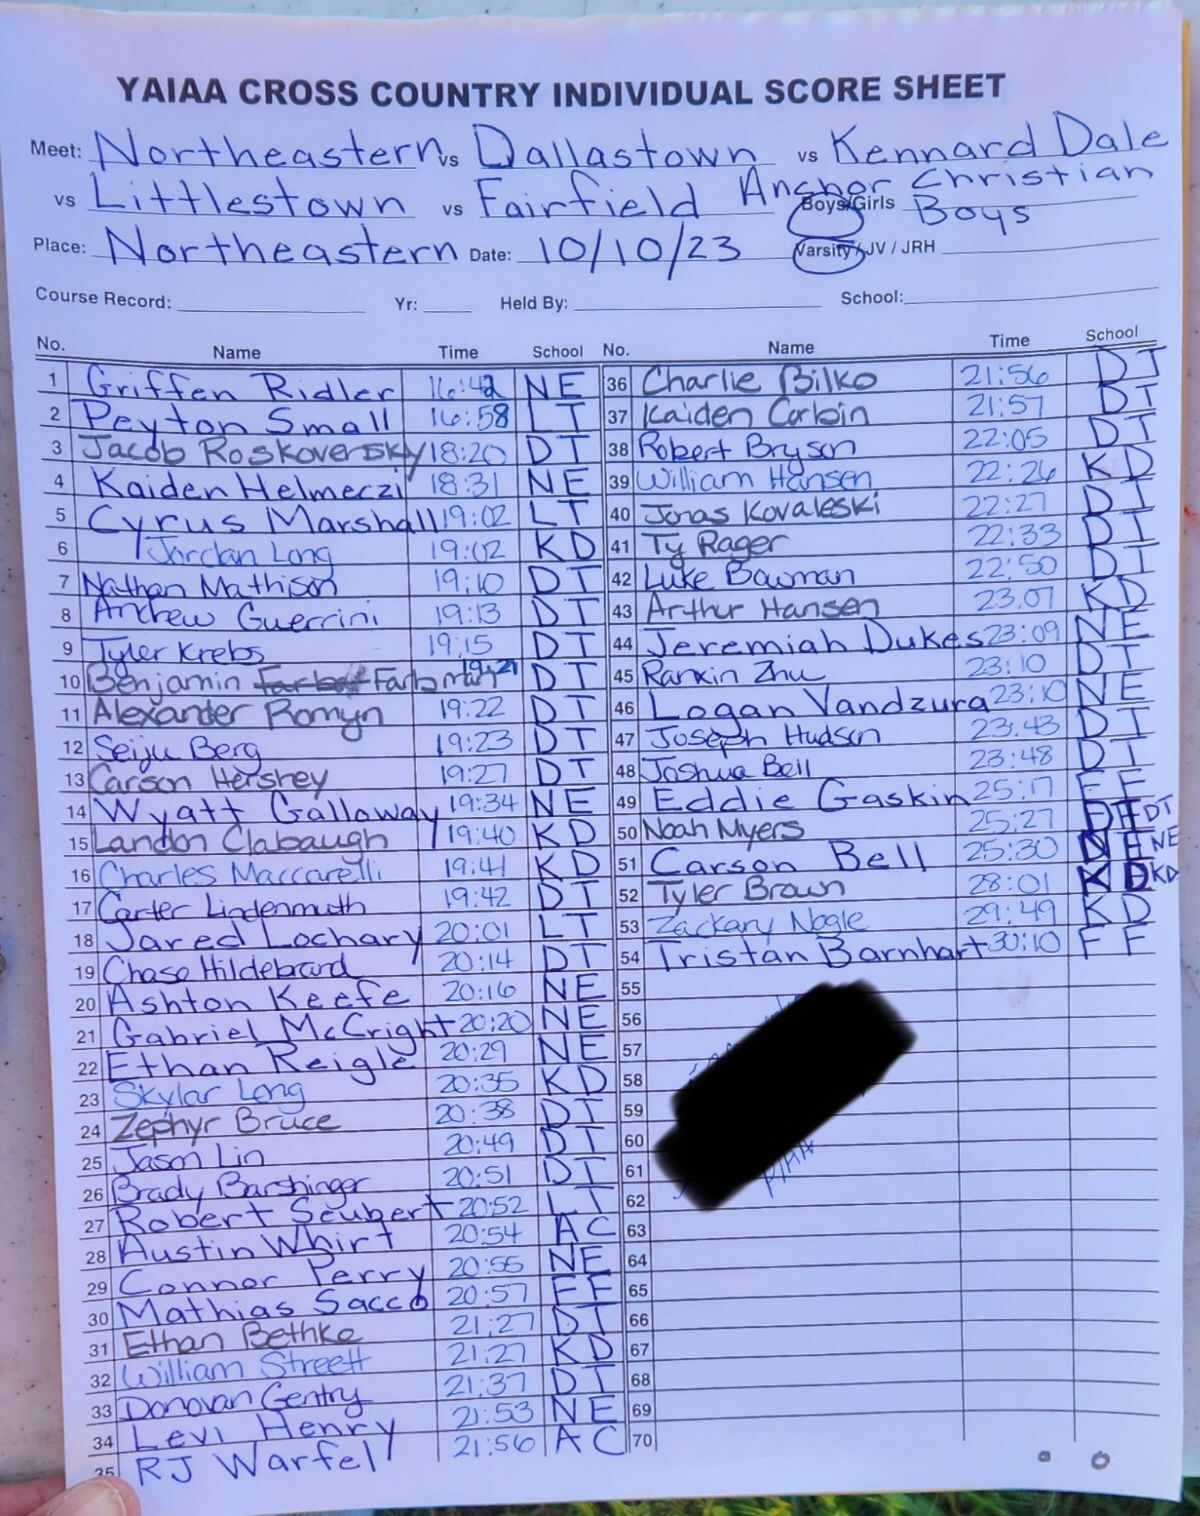 YAIAA CROSS COUNTRY INDIVIDUAL SCORE SHEET
Meet: Northeastern vs Dallastown vs Kennard Dale
vs Littlestown vs Fairfield Anchor Christian
Boys/Girls Boys
Place: Northeastern Date: 10/10/23 Varsity / JV / JRH
Course Record: Yr: Held By: School:
No. Name Time School No. Name Time School
1 Griffen Ridler 16:42 NE
2 Peyton Small 16:58 LT
3 Jacob Roskoversky 18:20 DT
4 Kaiden Helmeczi 18:31 NE
5 Cyrus Marshall 19:02 LT
6 Jordan Long 19:02 KD
7 Nathan Mathison 19:10 DT
8 Andrew Guerrini 19:13 DT
9 Tyler Krebs 19:15 DT
10 Benjamin Farbman 19:21 DT
11 Alexander Romyn 19:22 DT
12 Seiju Berg 19:23 DT
13 Carson Hershey 19:27 DT
14 Wyatt Galloway 19:34 NE
15 Landon Clabaugh 19:40 KD
16 Charles Maccarelli 19:41 KD
17 Carter Lindenmuth 19:42 DT
18 Jared Lochary 20:01 LT
19 Chase Hildebrand 20:14 DT
20 Ashton Keefe 20:16 NE
21 Gabriel McCright 20:20 NE
22 Ethan Reigle 20:29 NE
23 Skylar Long 20:35 KD
24 Zephyr Bruce 20:38 DT
25 Jason Lin 20:49 DT
26 Brady Barshinger 20:51 DT
27 Robert Seubert 20:52 LT
28 Austin Whirt 20:54 AC
29 Connor Perry 20:55 NE
30 Mathias Sacco 20:57 FF
31 Ethan Bethke 21:27 DT
32 William Streett 21:27 KD
33 Donovan Gentry 21:37 DT
34 Levi Henry 21:53 NE
35 RJ Warfel 21:56 AC
36 Charlie Bilko 21:56 DT
37 Kaiden Corbin 21:57 DT
38 Robert Bryson 22:05 DT
39 William Hansen 22:26 KD
40 Jonas Kovaleski 22:27 DT
41 Ty Rager 22:33 DT
42 Luke Bowman 22:50 DT
43 Arthur Hansen 23:07 KD
44 Jeremiah Dukes 23:09 NE
45 Ranxin Zhu 23:10 DT
46 Logan Vandzura 23:10 NE
47 Joseph Hudson 23:43 DT
48 Joshua Bell 23:48 DT
49 Eddie Gaskin 25:17 FF
50 Noah Myers 25:27 DT
51 Carson Bell 25:30 NE NE
52 Tyler Brown 28:01 KD KD
53 Zackary Nogle 29:49 KD
54 Tristan Barnhart 30:10 FF
55
56
57
58
59
60
61
62
63
64
65
66
67
68
69
70